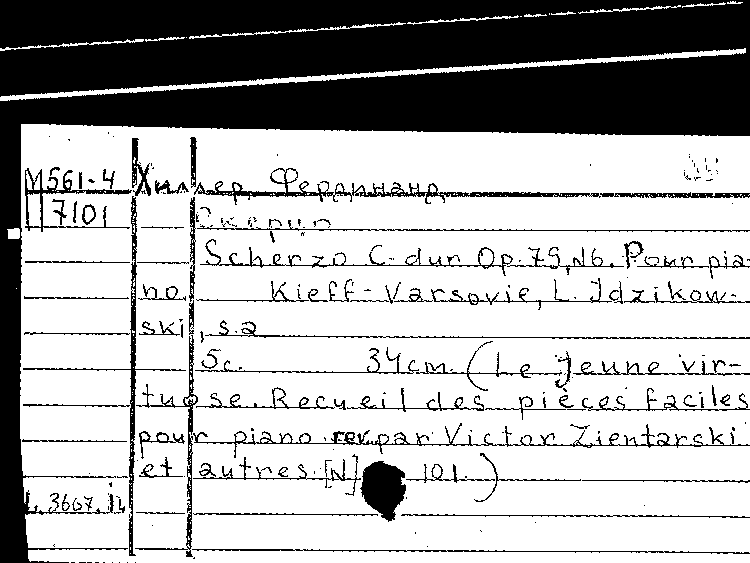 М561-4 Хиллер, Фердинанд.
7101 Скерцо
Scherzo C-dur Op.79,N6. Pour pia-
no. Kieff-Varsovie, L. Idzikow-
ski, s.a
5c. 34cm. (Le jeune vir-
tuose. Recueil des pièces faciles
pour piano rev.par Victor Zientarski
et autres.[N] 101.)